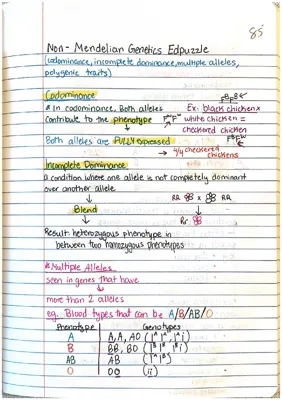 85
Non-Mendelian Genetics Edpuzzle
(codominance, incomplete dominance, multiple alleles,
polygenic traits)
Codominance
* In codominance, Both alleles
Ex: black chicken x
contribute to the phenotype
white chicken =
checkered chicken
Both alleles are FULLY expressed
→ 4/4 checkered
chickens
Incomplete Dominance
a condition where one allele is not completely dominant
over another allele
↓
Blend
↓
Result: heterozygous phenotype in
between two homozygous phenotypes
* Multiple Alleles
seen in genes that have
↓
more than 2 alleles
eg. Blood types that can be A/B/AB/O
Phenotype Genotypes
A A,A, AO (
B BB, BO (
AB AB (
O OO (ii)